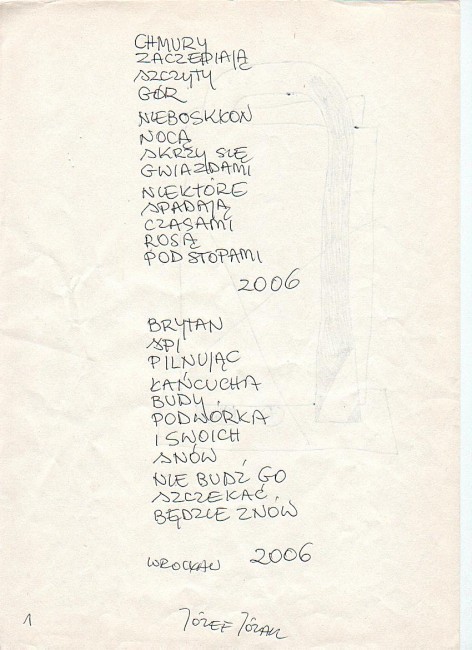 CHMURY
ZACZEPIAJĄ
SZCZYTY
GÓR
NIEBOSKŁON
NOCĄ
SKRZY SIĘ
GWIAZDAMI
NIEKTÓRE
SPADAJĄ
CZASAMI
ROSĄ
POD STOPAMI
2006
BRYTAN
ŚPI
PILNUJĄC
ŁAŃCUCHA
BUDY
PODWÓRKA
I SWOICH
SNÓW
NIE BUDŹ GO
SZCZEKAĆ
BĘDZIE ZNÓW
WROCŁAW 2006
1 JÓZEF JÓZAK